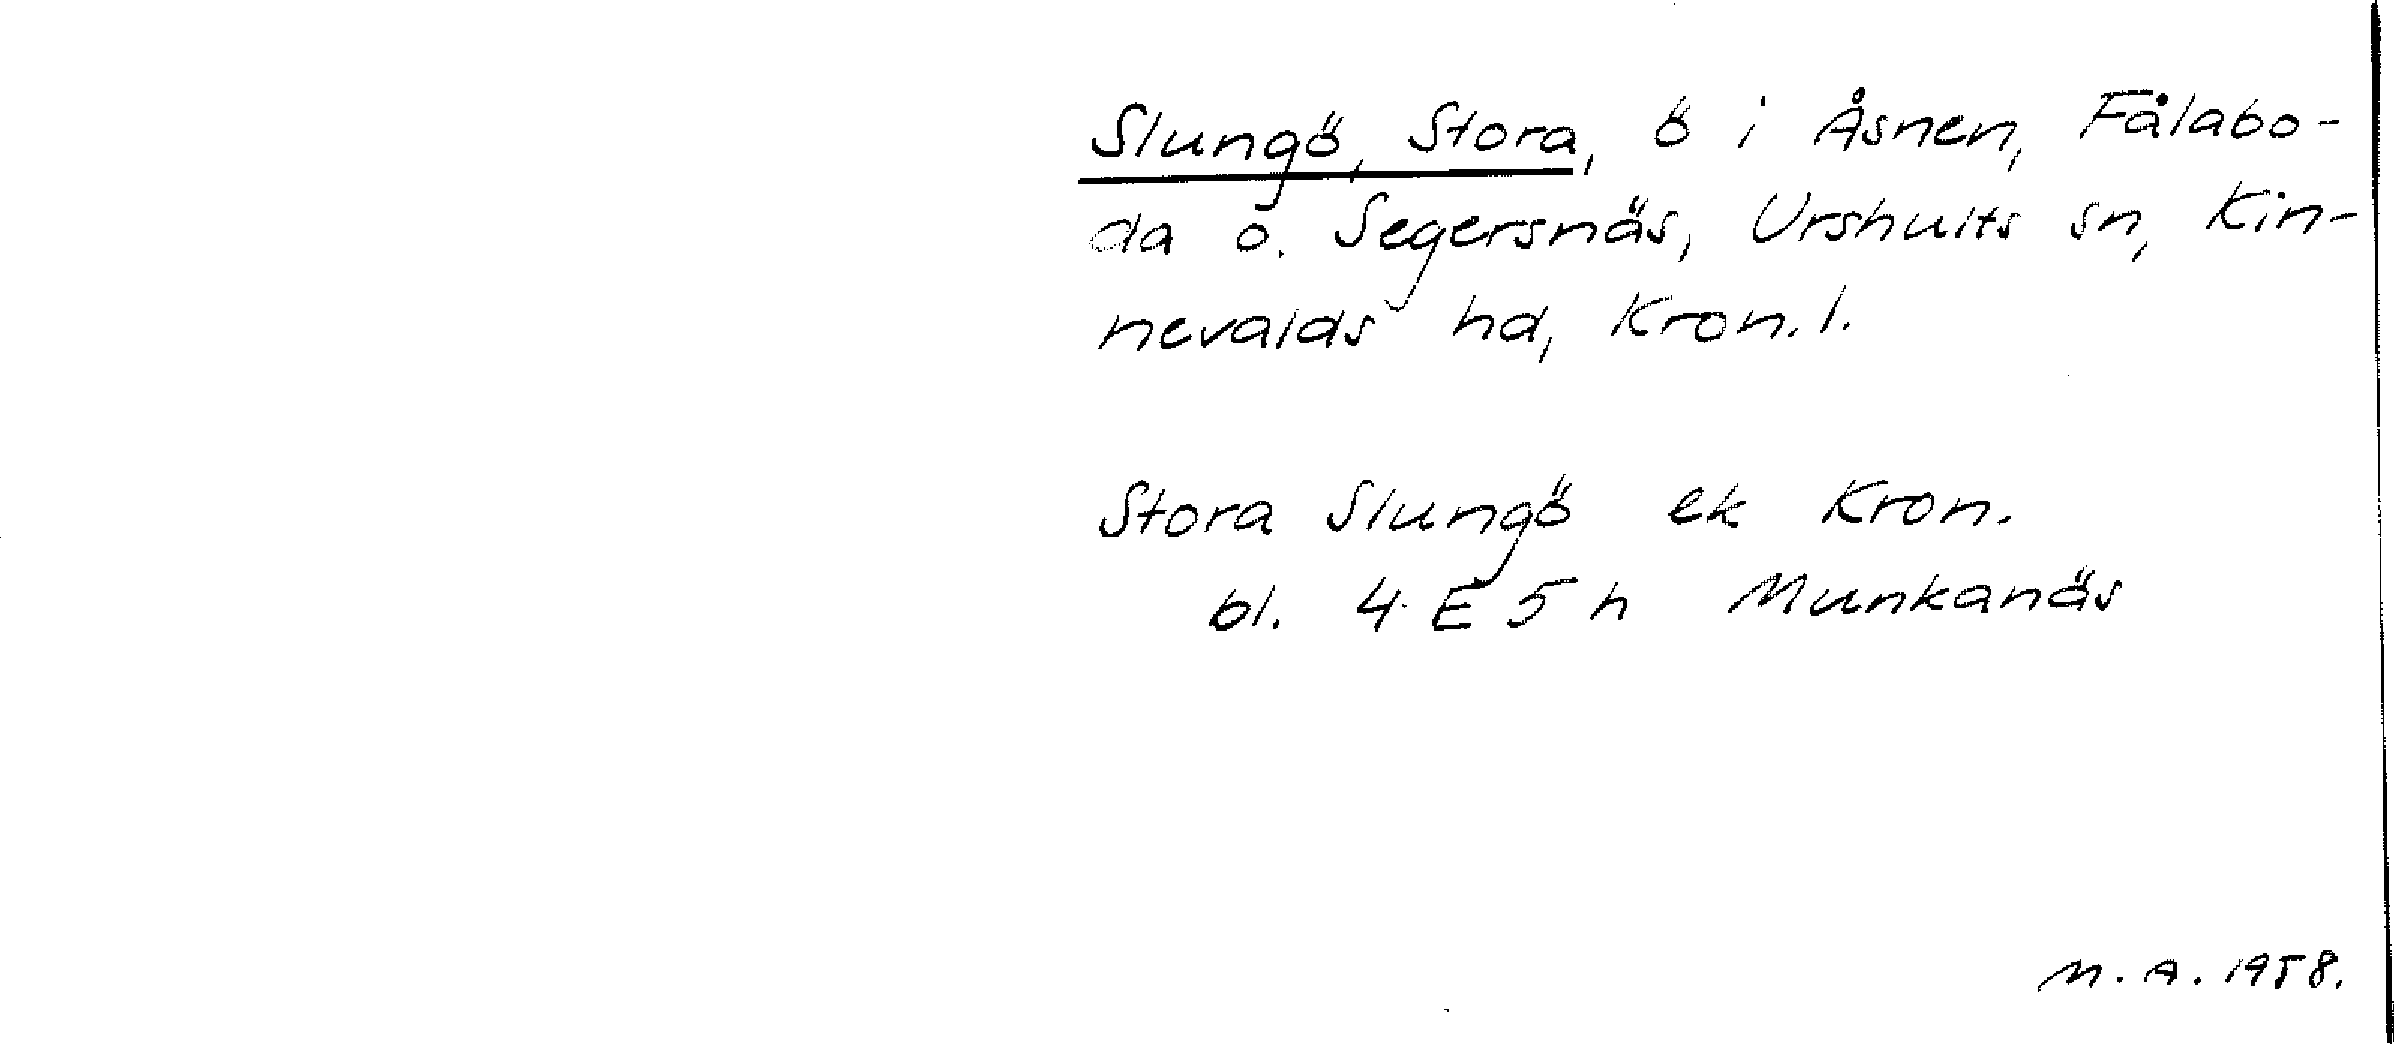 Slungö, Stora, ö i Åsnen, Fålabo-
da o. Segersnäs, Urshults sn, Kin-
nevalds hd, Kron. l.
Stora Slungö ek Kron.
bl. 4 E 5 h Munkanäs
M. A. 1958.